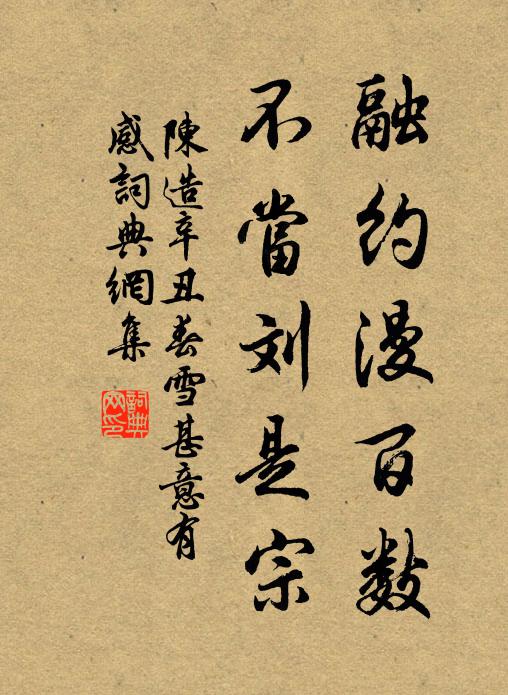 融约漫百数
不當刘是宗
陳造辛丑春雪甚意有
感詞典網集
詞典網印